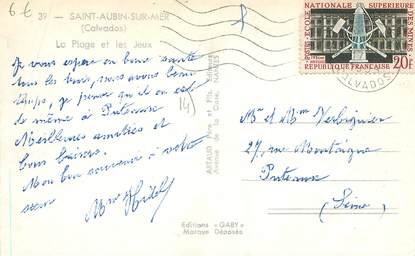 6 €
39 — SAINT-AUBIN-SUR-MER
(Calvados)
La Plage et les Jeux
Je vous espère en bonne santée
tous les trois, nous avons beau
temps, je pense qu'il en est
de même à Puteaux
Meilleures amitiés et
bons baisers.
Mon bon souvenir à votre
sœur
Mme
14
ARTAUD Père et Fils, Editeurs
Avenue de la Close, NANTES
Editions "GABY"
Marque Déposée
POSTES ÉCOLE NATIONALE SUPERIEURE DES MINES
RÉPUBLIQUE FRANÇAISE 20F
CALVADOS
Mr et Mme Verbignier
27, rue Montaigne
Puteaux
(Seine)